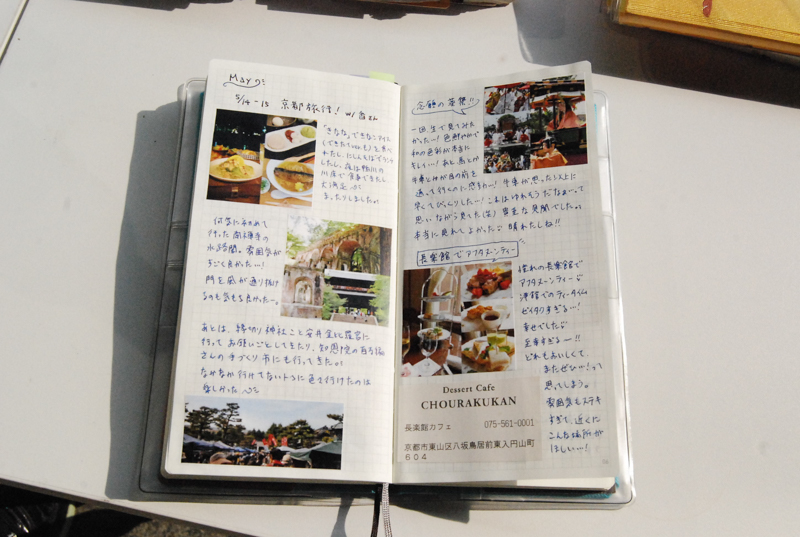 May
5/14-15 京都旅行! w/
「きなな」できなこアイス
(できたてver.も)を食べ
行った南禅寺の
水路閣。雰囲気が
すごく良かった…!
門を風が通り抜け
るのも気もち良かったー。
あとは、縁切り神社こと安井金比羅宮に
行ってお願いごとしてきたり、知恩院の
さんの手づくり市にも行ってきた。
なかなか行けてないトコに色々行けたのは
楽しかった
念願の葵祭!!
一回生で見てみた
かったー! 色鮮やかで
和の色彩が本当に
キレイ…! あと馬とか
牛車とかが目の前を
早くてびっくりしたー!
思いながら見てた(笑) 貴重な見聞でしたっ
本当に見れてよかった 晴れたしね!!
長楽館でアフタヌーンティー
憧れの長楽館で
アフタヌーンティー
洋館でのティータイム
ゼイタクすぎる…!
幸せでした
どれもおいしくて、
またぜひ…!って
思ってしまう。
雰囲気もステキ
すぎて、近くに
こんな場所が
ほしい…!
Dessert Cafe
CHOURAKUKAN
長楽館カフェ 075-561-0001
京都市東山区八坂鳥居前東入円山町
604